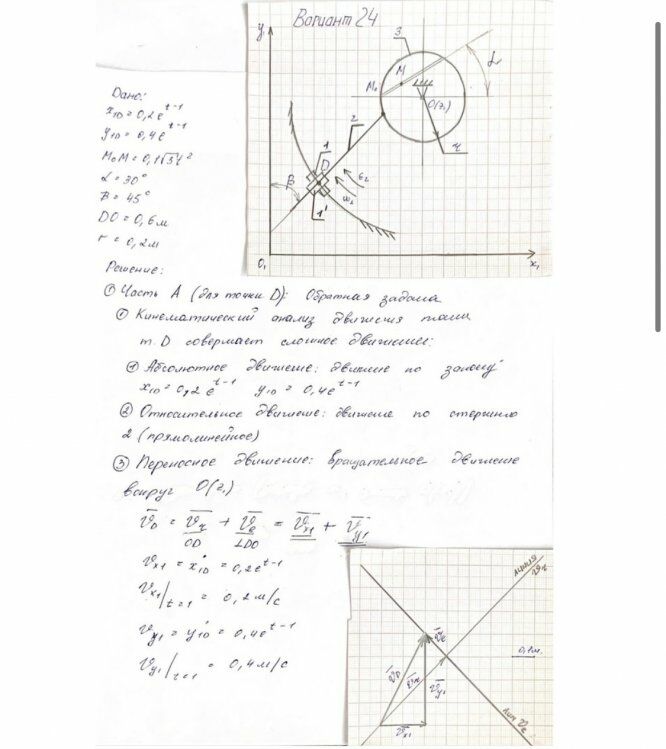 Вариант 24
y₁
3
M
M₀
α
O(z₁)
2
r
1
D
β
ε₂
ω₂
1'
O₁
x₁
Дано:
x₁D = 0,2e^t-1
y₁D = 0,4e^t-1
M₀M = 0,1√3t²
α = 30°
β = 45°
DO = 0,6 м
r = 0,2 м
Решение:
① Часть А (для точки D): Обратная задача
① Кинематический анализ движения
т. D совершает сложное движение:
① Абсолютное движение: движение по закону
x₁D = 0,2e^t-1 y₁D = 0,4e^t-1
② Относительное движение: движение по стержню
2 (прямолинейное)
③ Переносное движение: вращательное движение
вокруг O(z₁)
v̅D = v̅r + v̅e = v̅x1 + v̅y1
OD ⊥DO
vx1 = ẋ1D = 0,2e^t-1
vx1/t=1 = 0,2 м/с
vy1 = ẏ1D = 0,4e^t-1
vy1/t=1 = 0,4 м/с
линия
v̅r
v̅e
0,1 м
v̅D
v̅r
v̅y1
v̅x1
лин v̅e